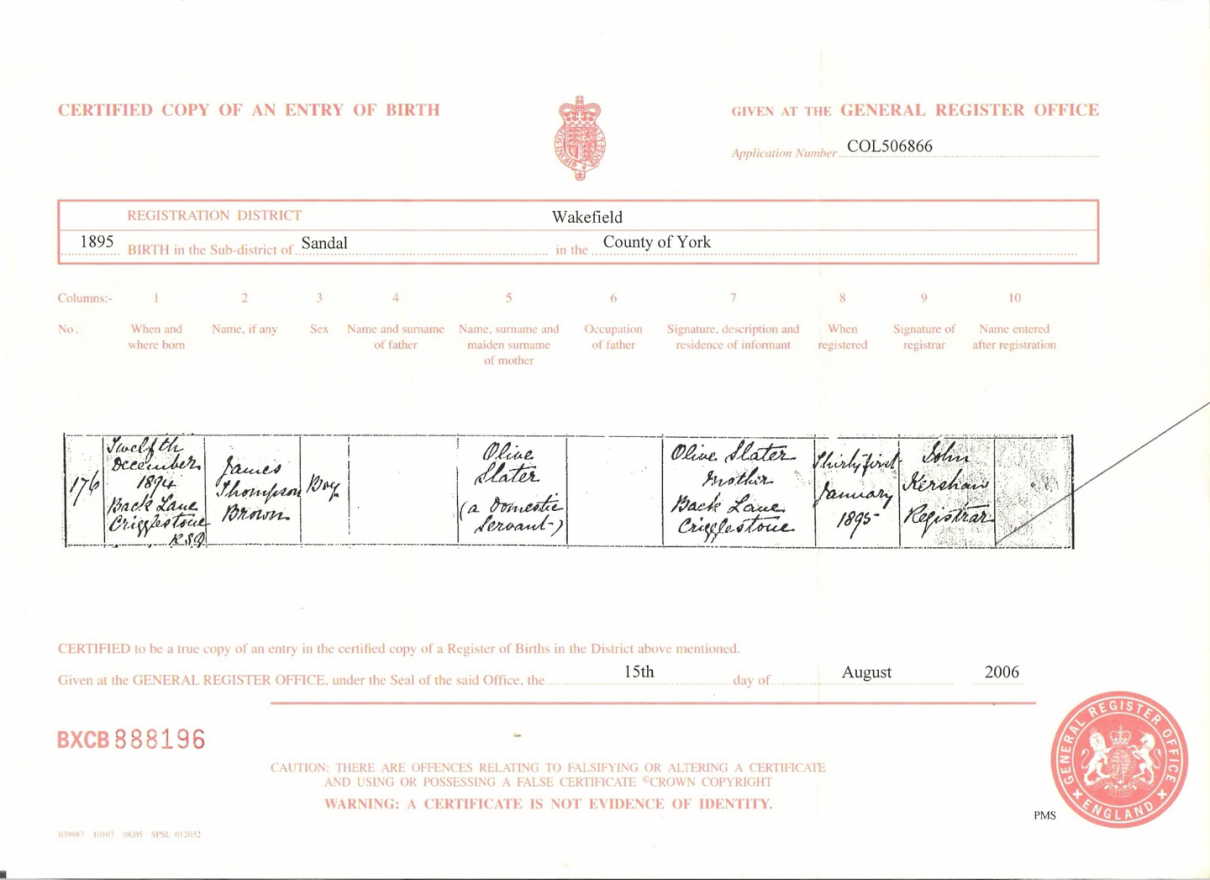 CERTIFIED COPY OF AN ENTRY OF BIRTH
GIVEN AT THE GENERAL REGISTER OFFICE
Application Number COL506866
REGISTRATION DISTRICT Wakefield
1895 BIRTH in the Sub-district of Sandal in the County of York
Columns:- 1 2 3 4 5 6 7 8 9 10
No. When and where born Name, if any Sex Name and surname of father Name, surname and maiden surname of mother Occupation of father Signature, description and residence of informant When registered Signature of registrar Name entered after registration
176
Twelfth
December
1894
Back Lane
Crigglestone
R.S.D.
James
Thompson
Brown
Boy
Olive
Slater
(a Domestic
Servant)
Olive Slater
Mother
Back Lane
Crigglestone
Thirty first
January
1895
John
Kershaw
Registrar
CERTIFIED to be a true copy of an entry in the certified copy of a Register of Births in the District above mentioned.
Given at the GENERAL REGISTER OFFICE, under the Seal of the said Office, the 15th day of August 2006
BXCB 888196
CAUTION: THERE ARE OFFENCES RELATING TO FALSIFYING OR ALTERING A CERTIFICATE
AND USING OR POSSESSING A FALSE CERTIFICATE ©CROWN COPYRIGHT
WARNING: A CERTIFICATE IS NOT EVIDENCE OF IDENTITY.
GENERAL REGISTER OFFICE
ENGLAND
PMS